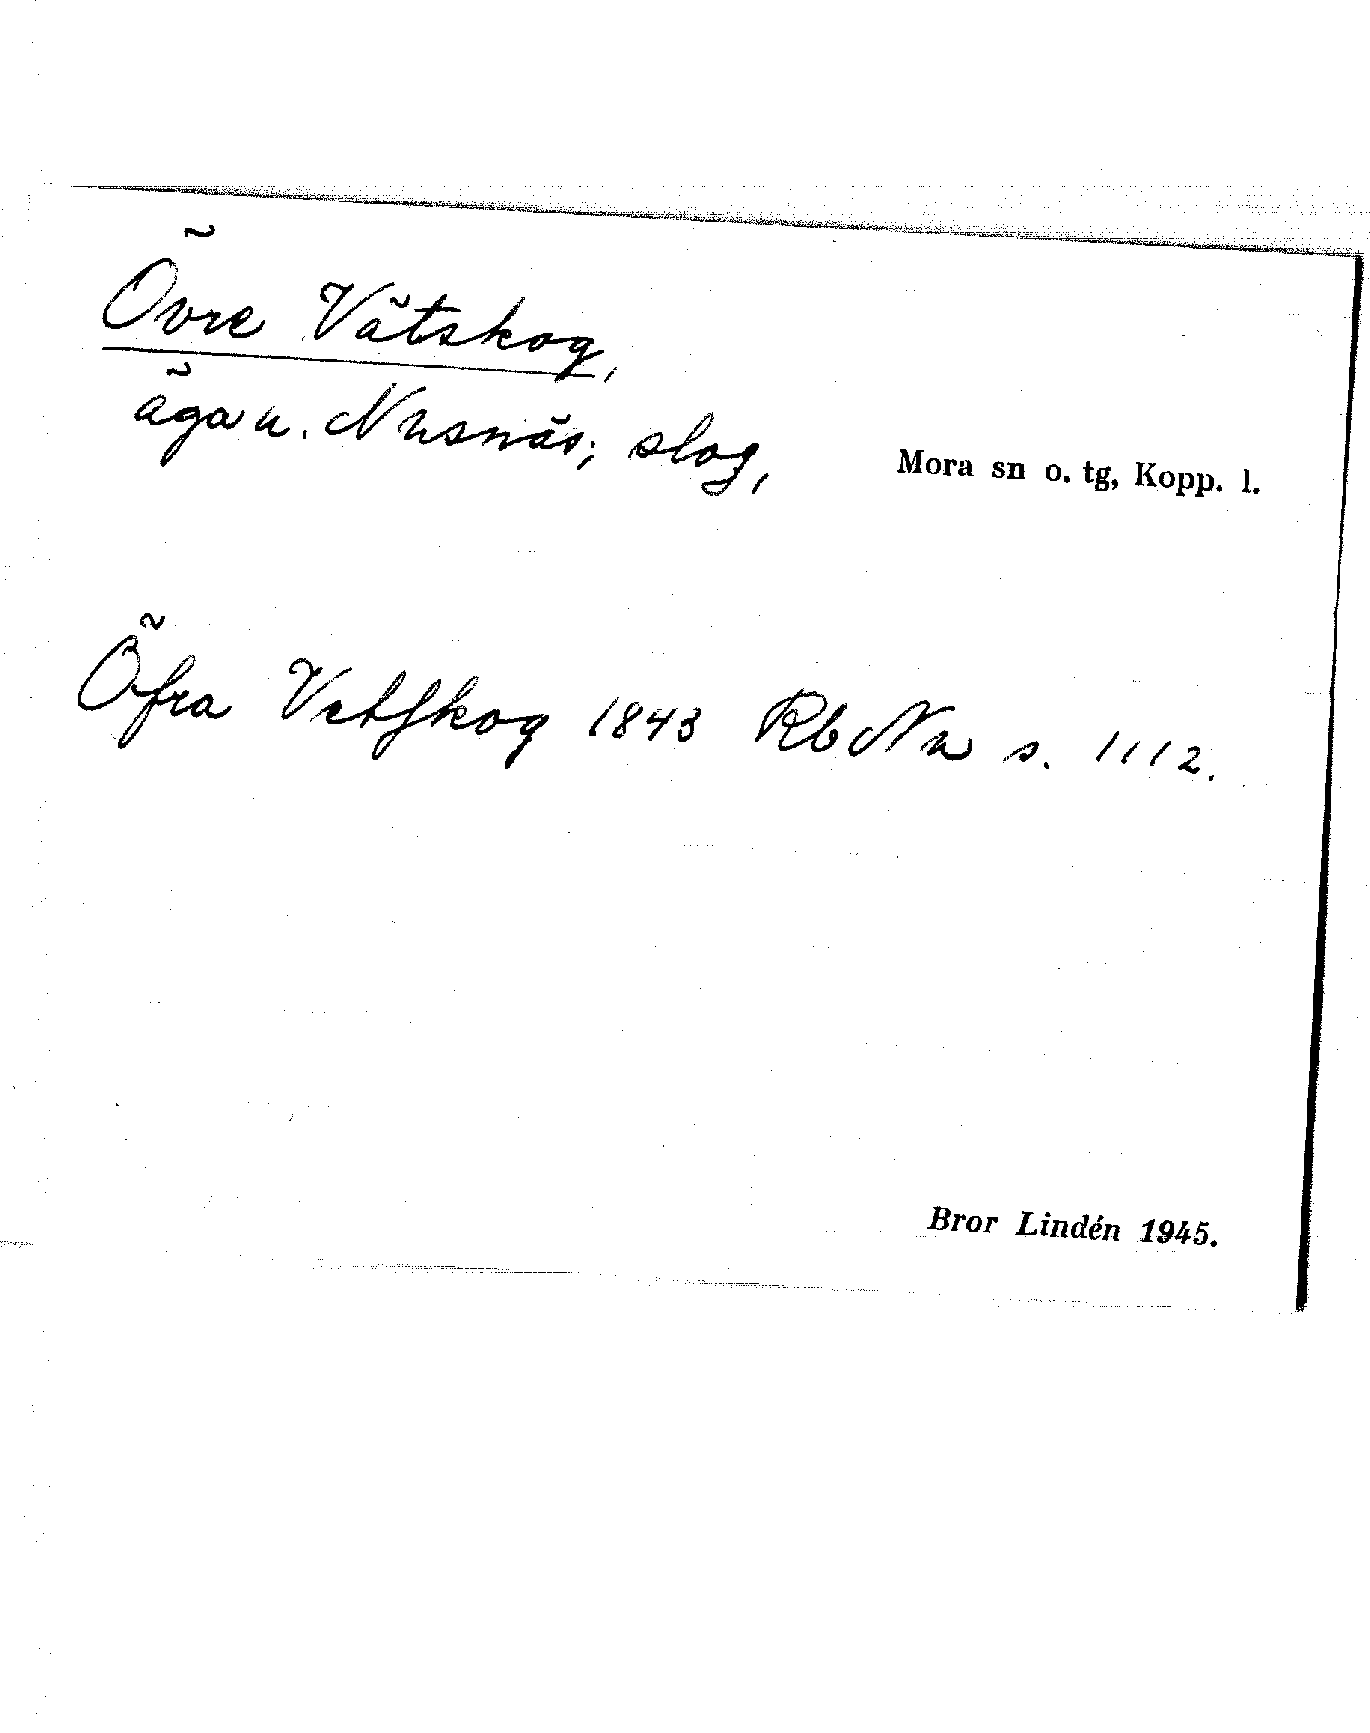 Övre Vätskog,
äga u. Nusnäs; slog,
Mora sn o. tg, Kopp. l.
Öfra Vetskog 1843 Rb Nu s. 1112.
Bror Lindén 1945.